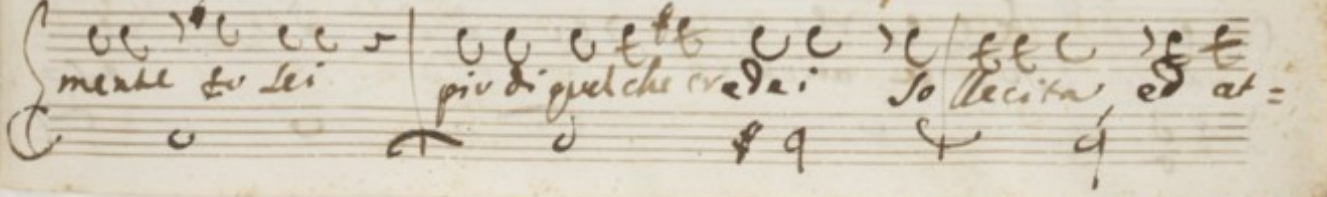 mente tu sei piu di quel che credei Sollecita ed at=